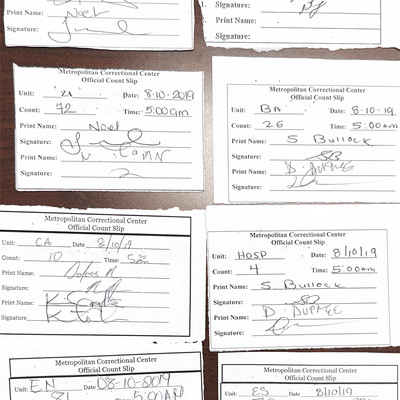 Print Name: Noel
Signature:
1.
Signature:
Print Name:
Signature:
Metropolitan Correctional Center
Official Count Slip
Unit: ZA Date: 8-10-2019
Count: 72 Time: 5:00am
Print Name: Noel
Signature:
Print Name:
Signature:
Metropolitan Correctional Center
Official Count Slip
Unit: BA Date: 8-10-19
Count: 26 Time: 5:00am
Print Name: S Bullock
Signature: SB
Print Name: D. DUPREE
Signature:
Metropolitan Correctional Center
Official Count Slip
Unit: CA Date 8/10/19
Count: 10 Time:
Print Name:
Signature:
Print Name:
Signature
Metropolitan Correctional Center
Official Count Slip
Unit: HOSP Date: 8/10/19
Count: 4 Time: 5:00am
Print Name: S Bullock
Signature: SB
Print Name: D. DUPREE
Signature:
Metropolitan Correctional Center
Official Count Slip
Unit: EN Date 08-10-2019
81 5:00AM
Metropolitan Correctional Center
Official Count Slip
Unit: ES Date 8/10/19